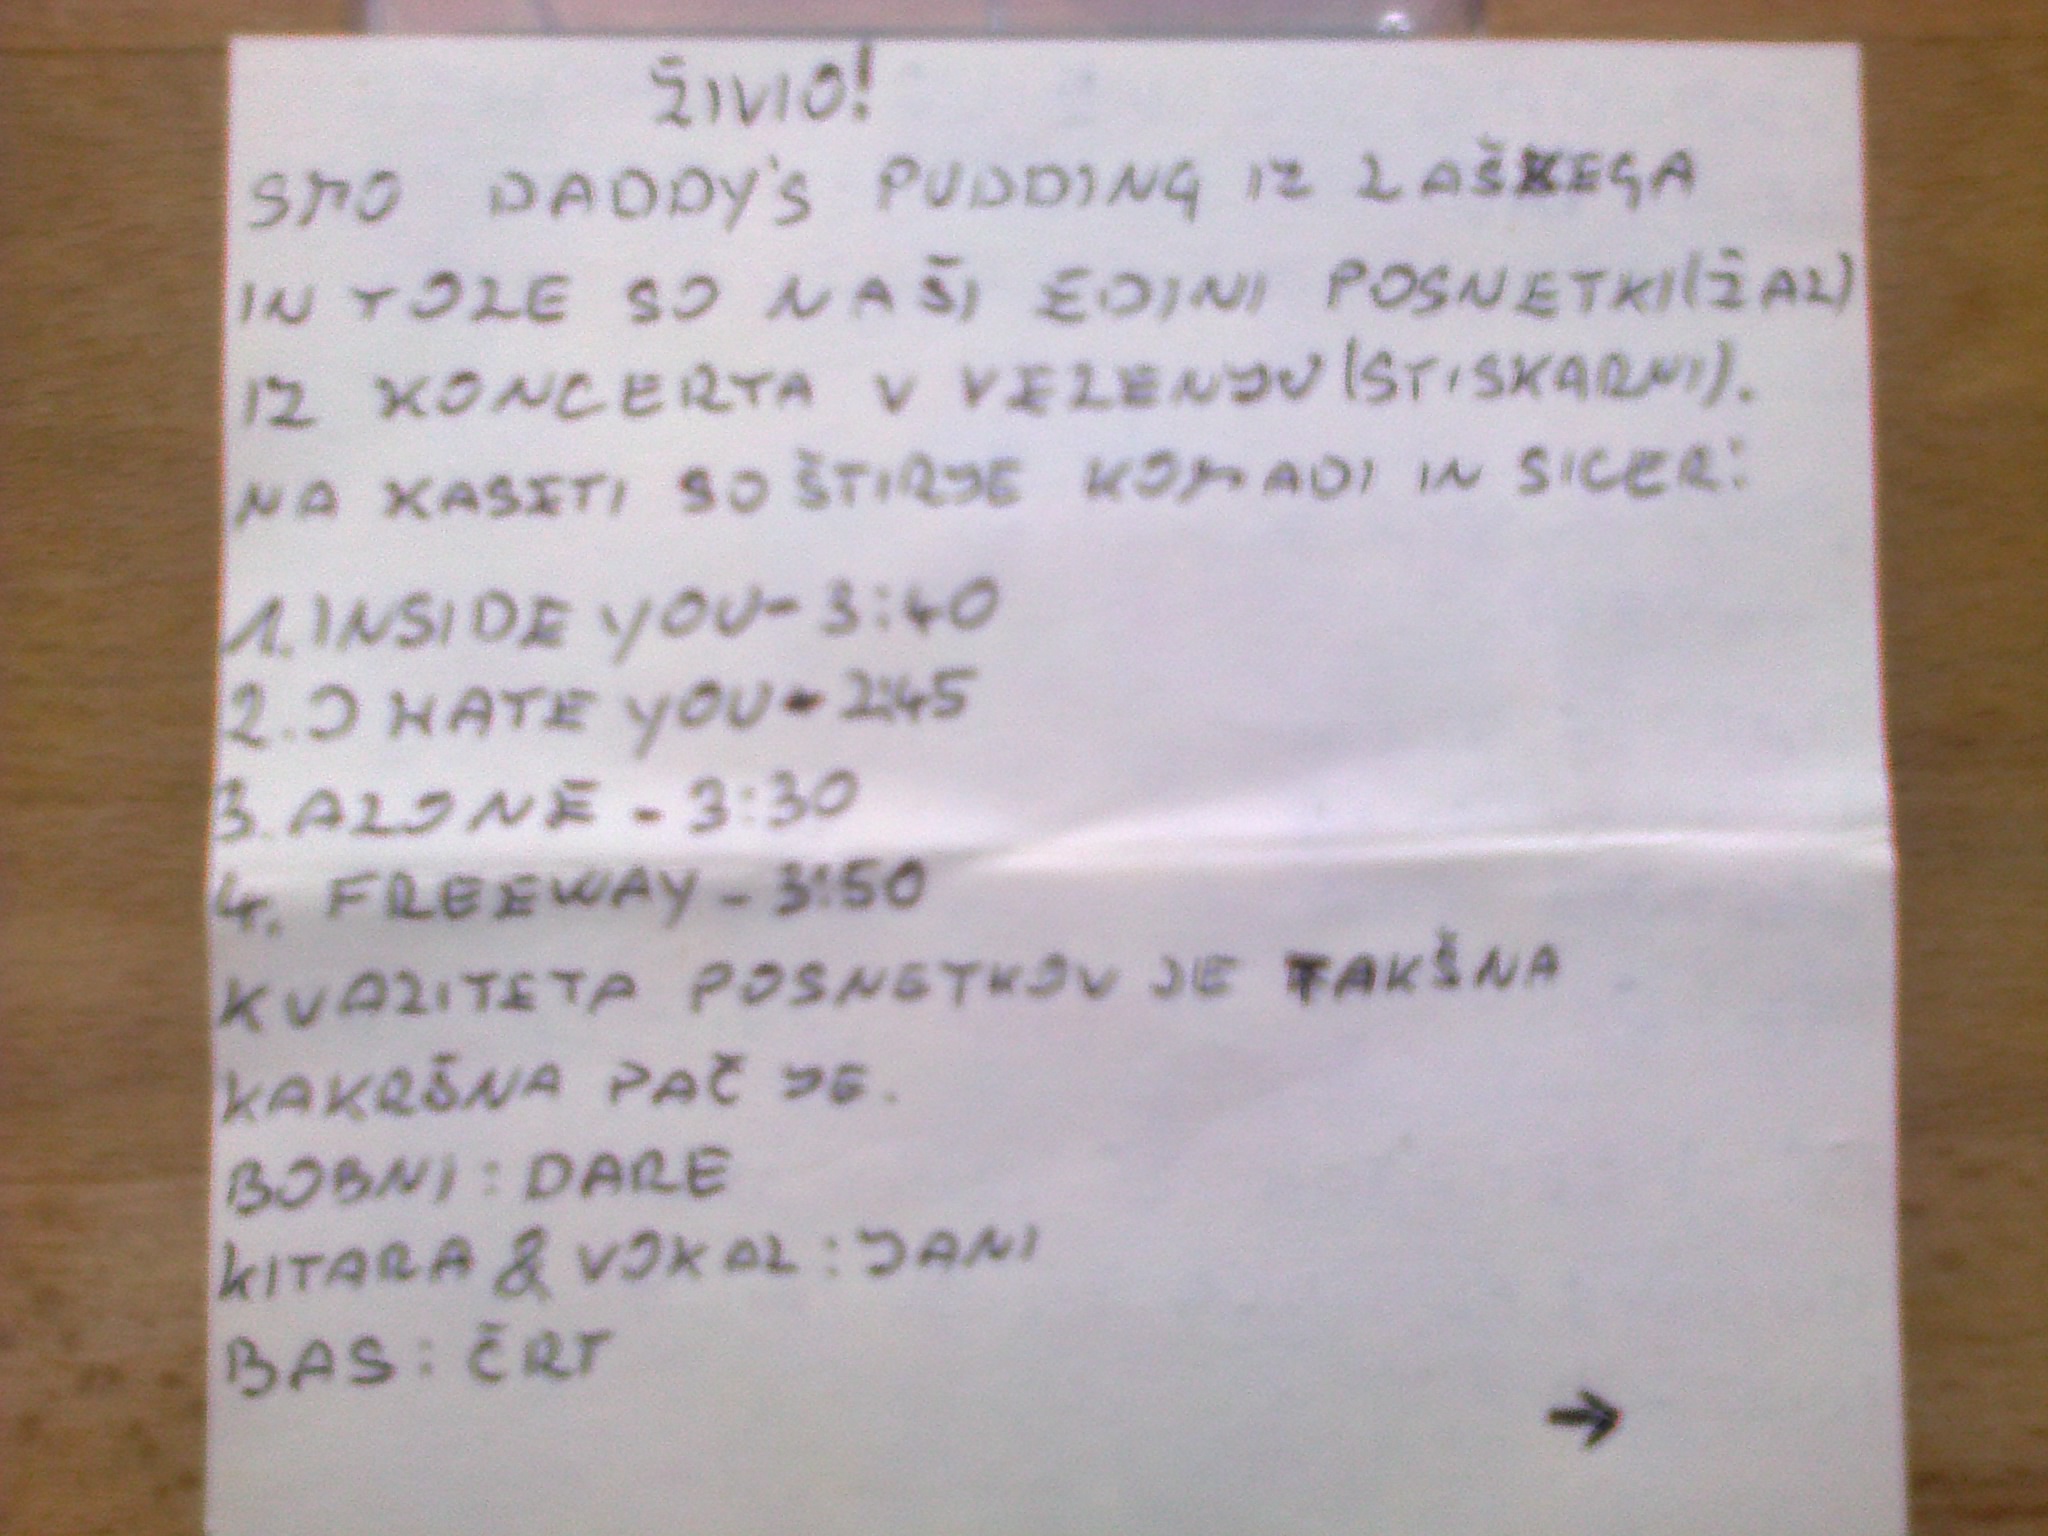 ŽIVIO!
SMO DADDY'S PUDDING IZ LAŠKEGA
IN TOLE SO NAŠI EDINI POSNETKI (ŽAL)
IZ KONCERTA V VELENJU (STISKARNI).
NA KASETI SO ŠTIRJE KOMADI IN SICER:
1. INSIDE YOU - 3:40
2. I HATE YOU - 2:45
3. ALONE - 3:30
4. FREEWAY - 3:50
KVALITETA POSNETKOV JE TAKŠNA
KAKRŠNA PAČ JE.
BOBNI: DARE
KITARA & VOKAL: JANI
BAS: ČRT
→